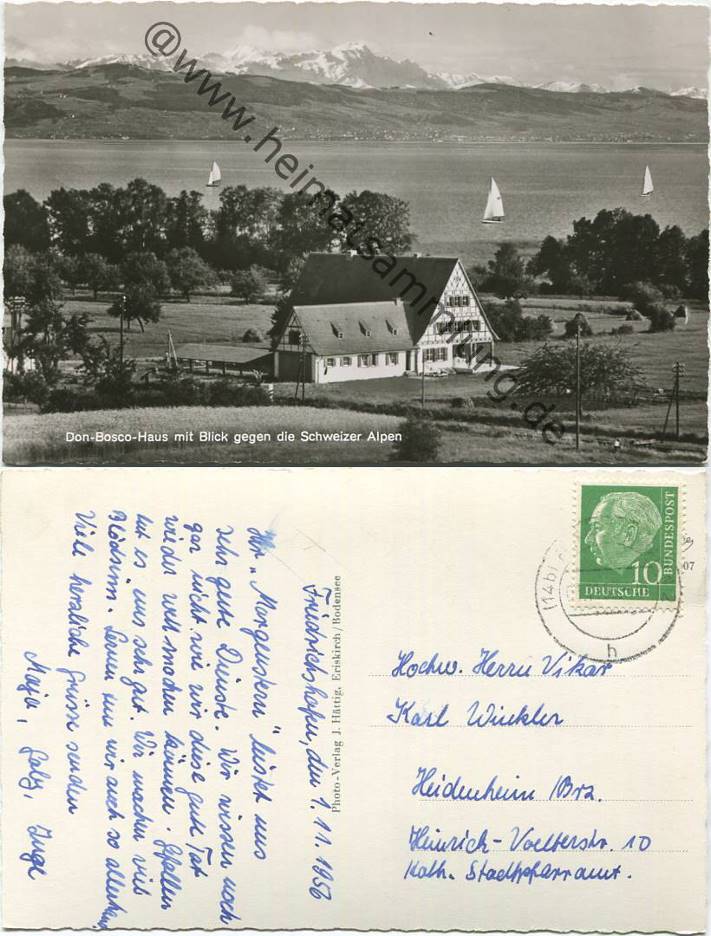 @www.heimatsammlung.de
Don-Bosco-Haus mit Blick gegen die Schweizer Alpen
10
DEUTSCHE
BUNDESPOST
07
(14b)
h
Photo-Verlag J. Hättig, Eriskirch/Bodensee
Friedrichshafen, den 1.11.1956
Ihr „Morgenstern" leistet uns
sehr gute Dienste. Wir wissen noch
gar nicht wie wir diese gute Tat
wieder gutmachen können. Gefallen
tut es uns sehr gut. Wir machen viel
Blödsinn. Lernen tun wir auch so allerhand
Viele herzliche Grüsse senden
Maja, Gaby, Inge
Hochw. Herrn Vikar
Karl Winkler
Heidenheim/Brz.
Heinrich-Voelterstr. 10
Kath. Stadtpfarramt.